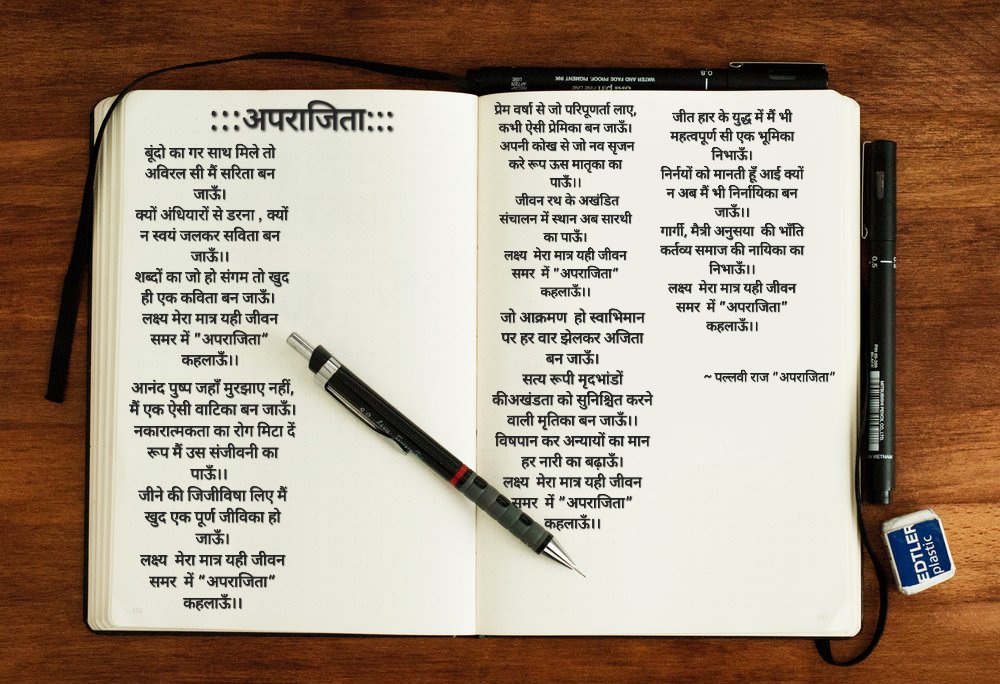 :::अपराजिता:::
बूंदो का गर साथ मिले तो
अविरल सी मैं सरिता बन
जाऊँ।
क्यों अंधियारों से डरना , क्यों
न स्वयं जलकर सविता बन
जाऊँ।।
शब्दों का जो हो संगम तो खुद
ही एक कविता बन जाऊँ।
लक्ष्य मेरा मात्र यही जीवन
समर में "अपराजिता"
कहलाऊँ।।
आनंद पुष्प जहाँ मुरझाए नहीं,
मैं एक ऐसी वाटिका बन जाऊँ।
नकारात्मकता का रोग मिटा दें
रूप मैं उस संजीवनी का
पाऊँ।।
जीने की जिजीविषा लिए मैं
खुद एक पूर्ण जीविका हो
जाऊँ।
लक्ष्य मेरा मात्र यही जीवन
समर में "अपराजिता"
कहलाऊँ।।
प्रेम वर्षा से जो परिपूणर्ता लाए,
कभी ऐसी प्रेमिका बन जाऊँ।
अपनी कोख से जो नव सृजन
करे रूप ऊस मातृका का
पाऊँ।।
जीवन रथ के अखंडित
संचालन में स्थान अब सारथी
का पाऊँ।
लक्ष्य मेरा मात्र यही जीवन
समर में "अपराजिता"
कहलाऊँ।।
जो आक्रमण हो स्वाभिमान
पर हर वार झेलकर अजिता
बन जाऊँ।
सत्य रूपी मृदभांडों
कीअखंडता को सुनिश्चित करने
वाली मृतिका बन जाऊँ।।
विषपान कर अन्यायों का मान
हर नारी का बढ़ाऊँ।
लक्ष्य मेरा मात्र यही जीवन
समर में "अपराजिता"
कहलाऊँ।।
जीत हार के युद्ध में मैं भी
महत्वपूर्ण सी एक भूमिका
निभाऊँ।
निर्नयों को मानती हूँ आई क्यों
न अब मैं भी निर्नायिका बन
जाऊँ।।
गार्गी, मैत्री अनुसया की भाँति
कर्तव्य समाज की नायिका का
निभाऊँ।।
लक्ष्य मेरा मात्र यही जीवन
समर में "अपराजिता"
कहलाऊँ।।
~ पल्लवी राज "अपराजिता"
WATER AND FADE PROOF, PIGMENT INK
pin FINE LINE
0.8
0.5
PIN 05-200
MITSUBISHI PENCIL CO.,LTD.
VIETNAM
EDTLER
plastic